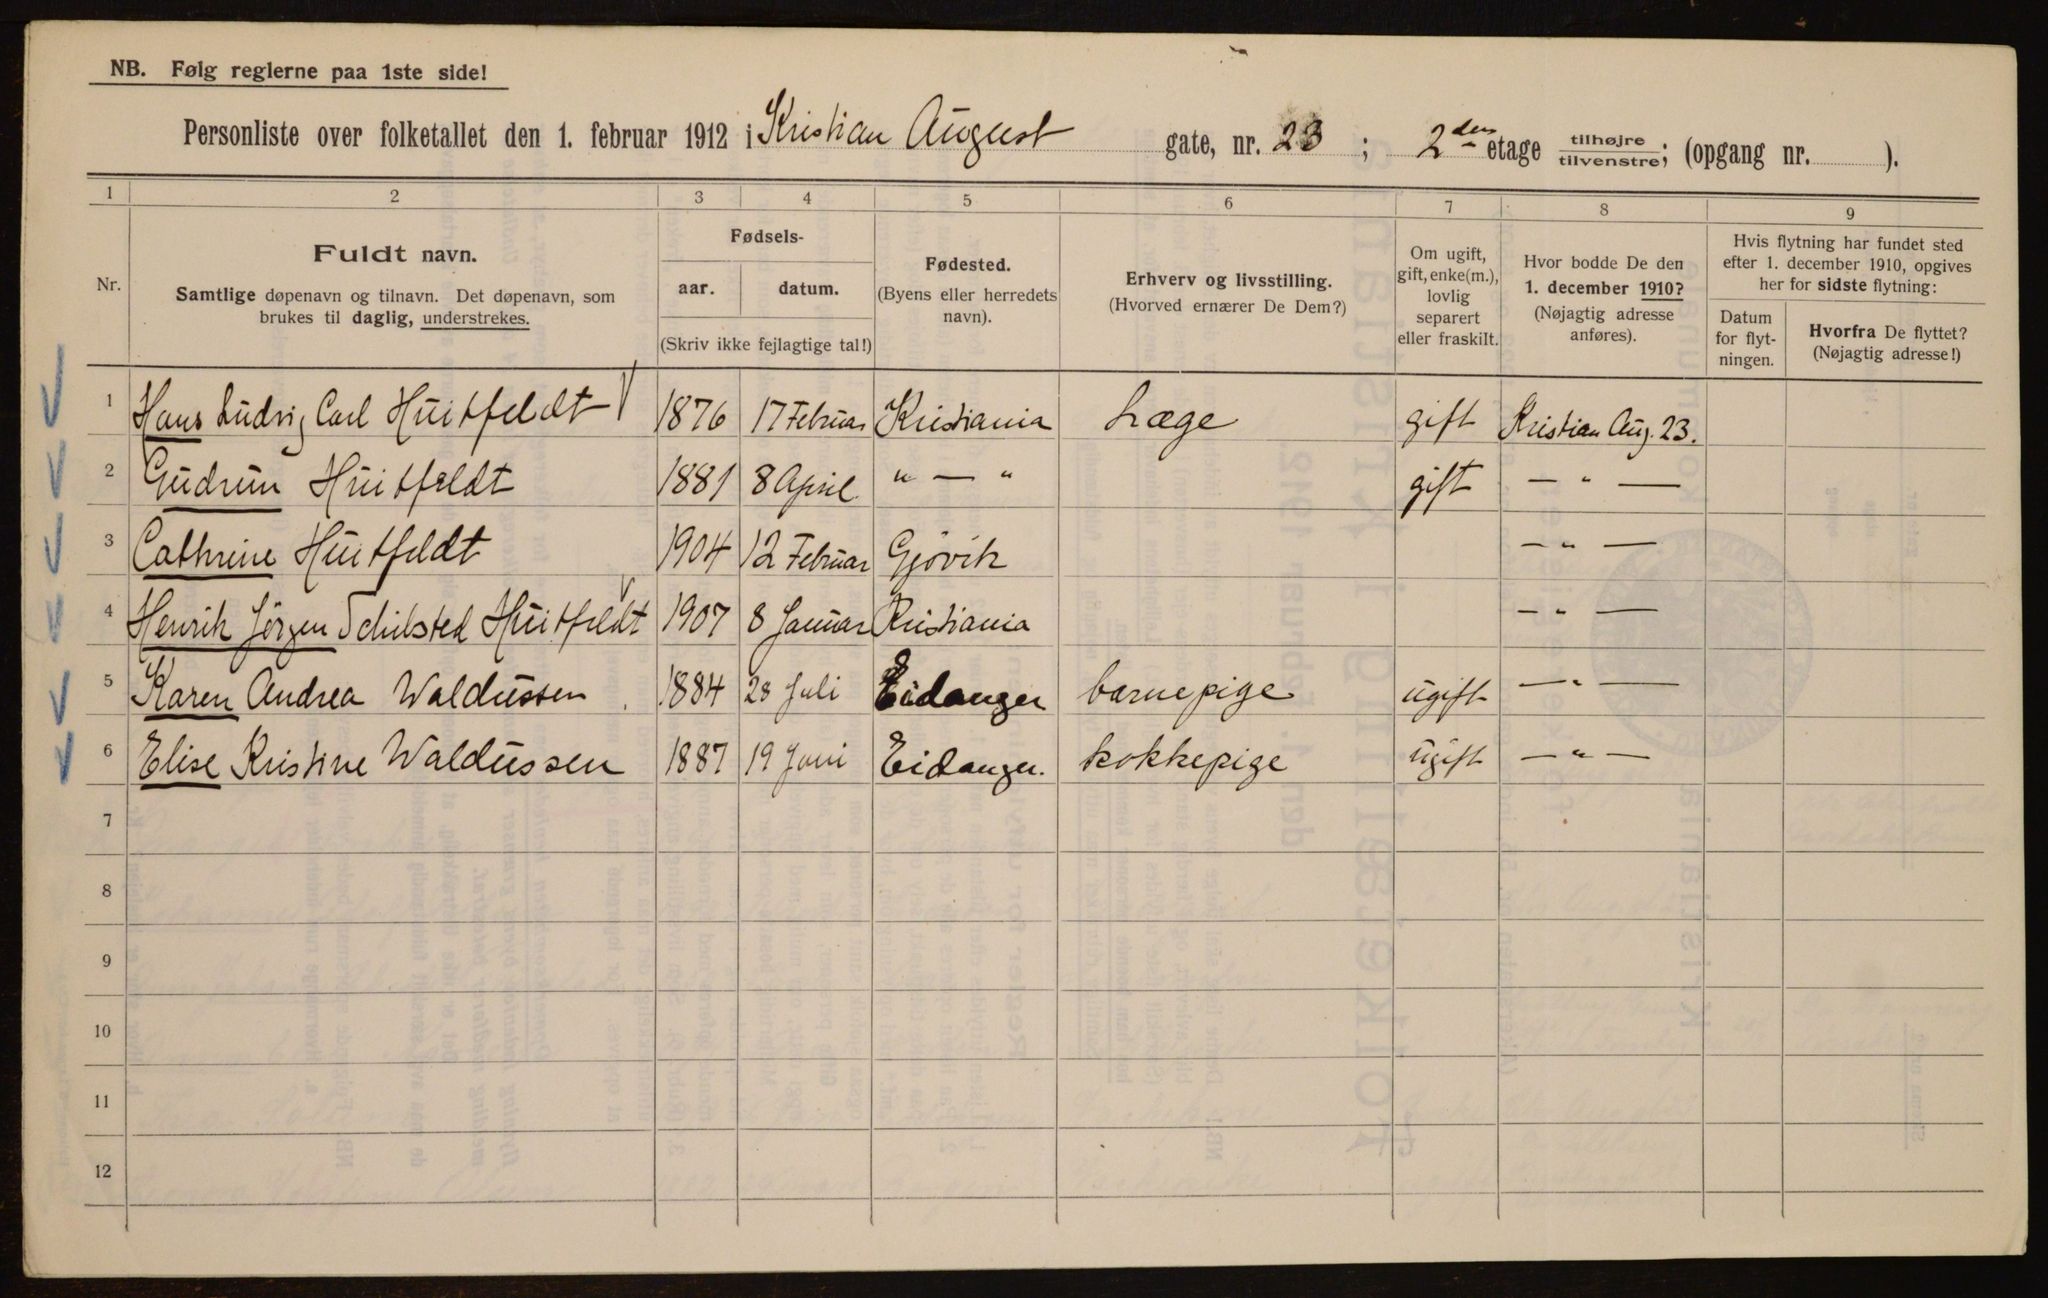 NB. Følg reglerne paa 1ste side!
Personliste over folketallet den 1. februar 1912 i Kristian August gate, nr. 23; 2den etage tilhøjre tilvenstre; (opgang nr. ).
1 2 3 4 5 6 7 8 9
Nr.
Fuldt navn.
Samtlige døpenavn og tilnavn. Det døpenavn, som
brukes til daglig, understrekes.
Fødsels-
aar. datum.
(Skriv ikke fejlagtige tal!)
Fødested.
(Byens eller herredets
navn).
Erhverv og livsstilling.
(Hvorved ernærer De Dem?)
Om ugift,
gift, enke(m.),
lovlig
separert
eller fraskilt.
Hvor bodde De den
1. december 1910?
(Nøjagtig adresse
anføres).
Hvis flytning har fundet sted
efter 1. december 1910, opgives
her for sidste flytning:
Datum
for flyt-
ningen.
Hvorfra De flyttet?
(Nøjagtig adresse!)
1 Hans Ludvig Carl Huitfeldt 1876 17 Februar Kristiania Læge gift Kristian Aug. 23.
2 Gudrun Huitfeldt 1881 8 April " — " gift — " —
3 Cathrine Huitfeldt 1904 12 Februar Gjøvik — " —
4 Henrik Jørgen Schibsted Huitfeldt 1907 8 Januar Kristiania — " —
5 Karen Andrea Waldussen 1884 28 Juli Eidanger barnepige ugift — " —
6 Elise Kristine Waldussen 1887 19 Juni Eidanger. kokkepige ugift — " —
7
8
9
10
11
12